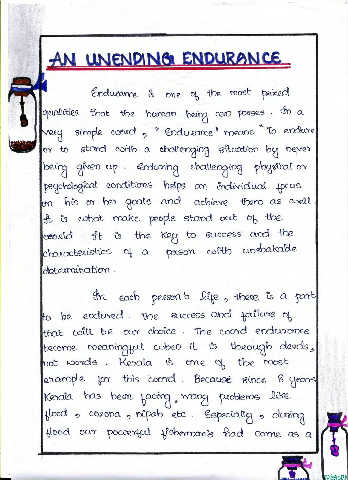 AN UNENDING ENDURANCE
Endurance is one of the most prized
qualities that the human being can posses. In a
very simple word, "Endurance" means "To endure
or to stand with a challenging situation by never
being given up. Enduring challenging physical or
psychological conditions helps an individual focus
on his or her goals and achieve them as well
It is what make people stand out of the
It is the key to success and the
characteristics of a person with unshakable
determination.
In each person's life, there is a part
to be endured. The success and failure of
that will be our choice. The word endurance
become meaningful when it is through deeds,
not words. Kerala is one of the most
example for this word. Because since 8 years
Kerala has been facing many problems like
flood, corona, nipah etc. Especially, during
flood our powerful fisherman's had come as a